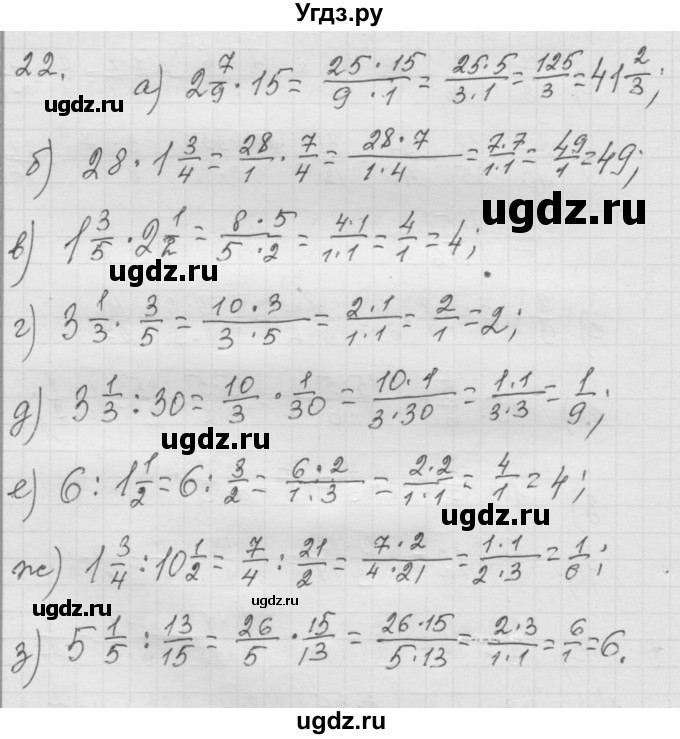 Угдз.ру
22. а) 2 7/9 · 15 = (25 · 15)/(9 · 1) = (25·5)/(3·1) = 125/3 = 41 2/3;
ugdz.ru
б) 28 · 1 3/4 = 28/1 · 7/4 = (28 · 7)/(1 · 4) = (7·7)/(1·1) = 49/1 = 49;
ugdz.ru
в) 1 3/5 · 2 1/2 = (8 · 5)/(5 · 2) = (4·1)/(1·1) = 4/1 = 4;
ugdz.ru
г) 3 1/3 · 3/5 = (10 · 3)/(3 · 5) = (2·1)/(1·1) = 2/1 = 2;
д) 3 1/3 : 30 = 10/3 · 1/30 = (10 · 1)/(3 · 30) = (1·1)/(3·3) = 1/9;
ugdz.ru
е) 6 : 1 1/2 = 6 : 3/2 = (6 · 2)/(1 · 3) = (2·2)/(1·1) = 4/1 = 4;
ugdz.ru
ж) 1 3/4 : 10 1/2 = 7/4 : 21/2 = (7 · 2)/(4 · 21) = (1·1)/(2·3) = 1/6;
ugdz.ru
ugdz.ru
з) 5 1/5 : 13/15 = 26/5 · 15/13 = (26 · 15)/(5 · 13) = (2·3)/(1·1) = 6/1 = 6.
ugdz.ru
ugdz.ru